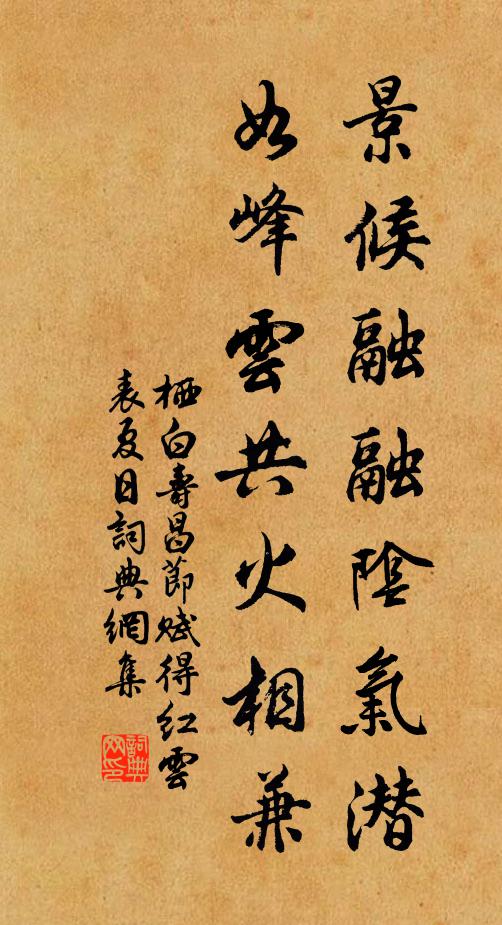 景候融融陰氣潛
如峰雲共火相兼
栖白壽昌節賦得紅雲
表夏日詞典網集
詞典
网印